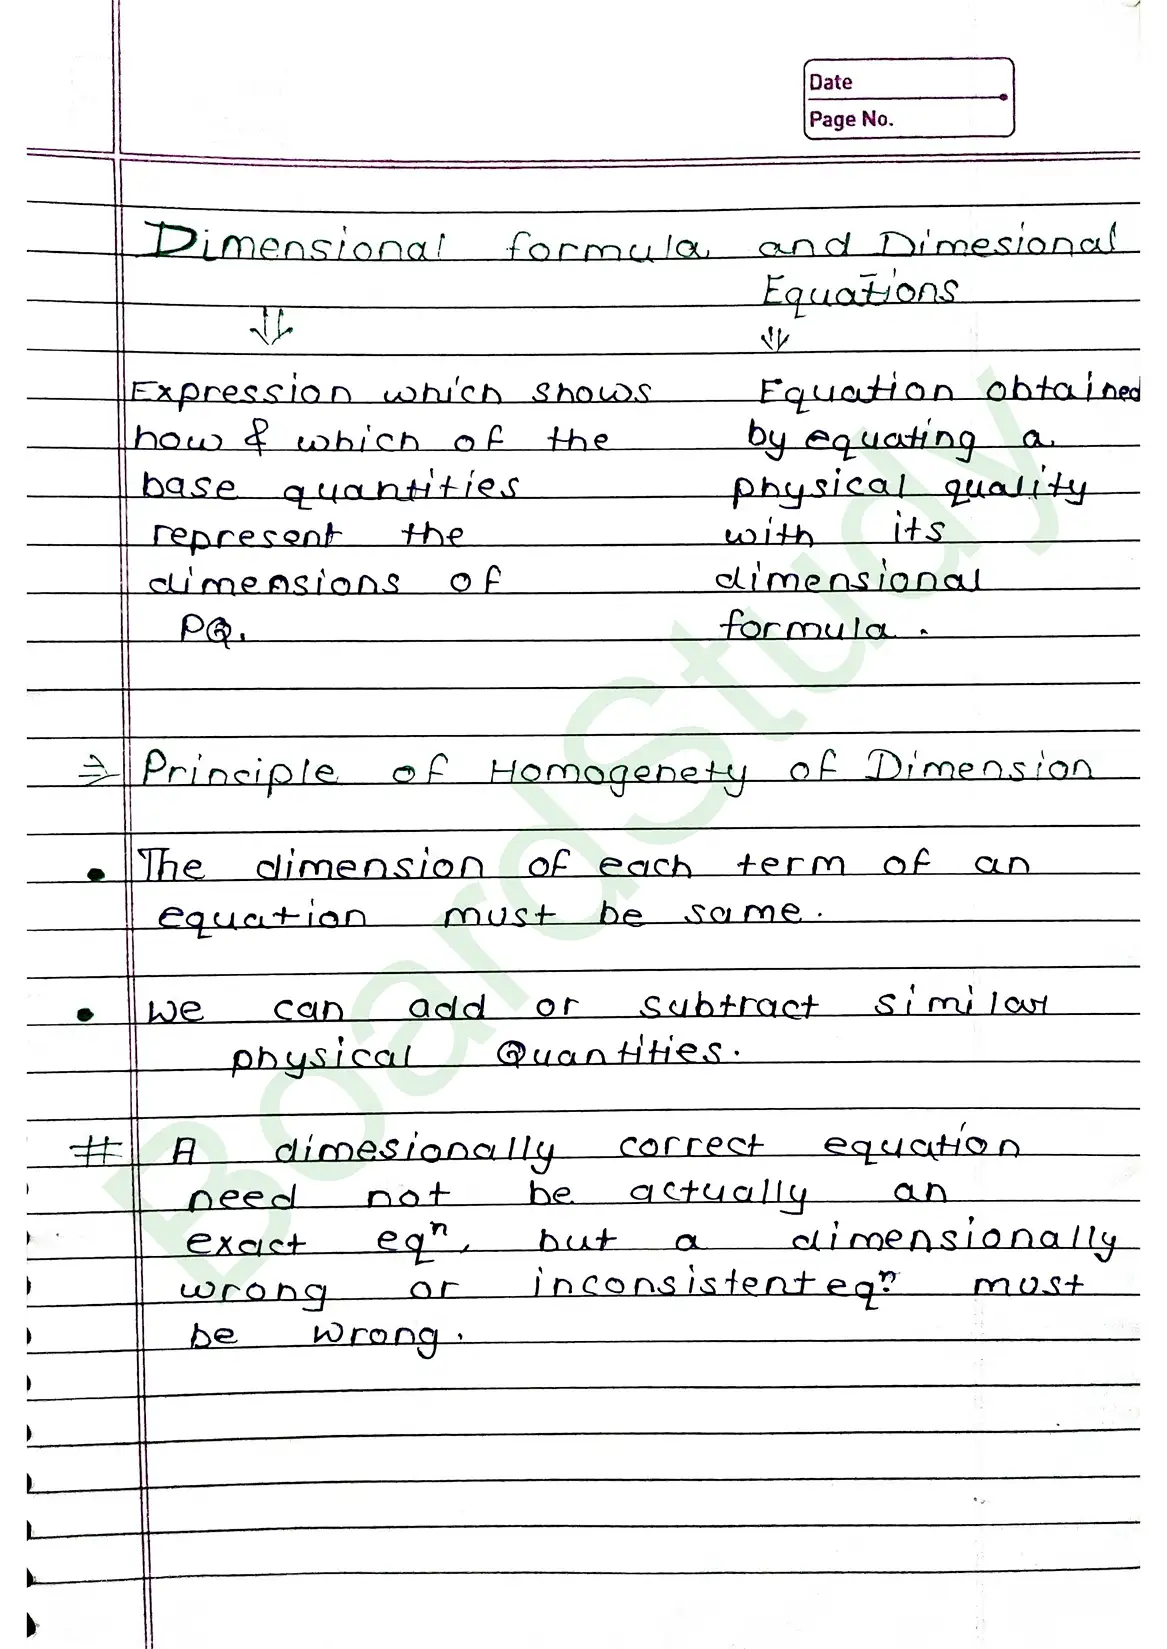 Date
Page No.
Dimensional formula and Dimesional
Equations
⇓ ⇓
Expression which shows
how & which of the
base quantities
represent the
dimensions of
PQ.
Equation obtained
by equating a
physical quality
with its
dimensional
formula.
⇒ Principle of Homogenety of Dimension
• The dimension of each term of an
equation must be same.
• We can add or subtract similar
physical Quantities.
# A dimesionally correct equation
need not be actually an
exact eqⁿ, but a dimensionally
wrong or inconsistent eqⁿ. must
be wrong.
BoardStudy